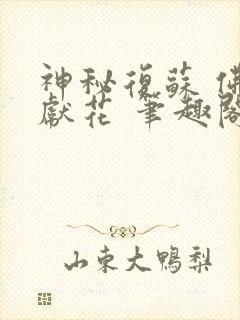 神秘復蘇 佛
獻花 筆趣閣
山東大鴨梨